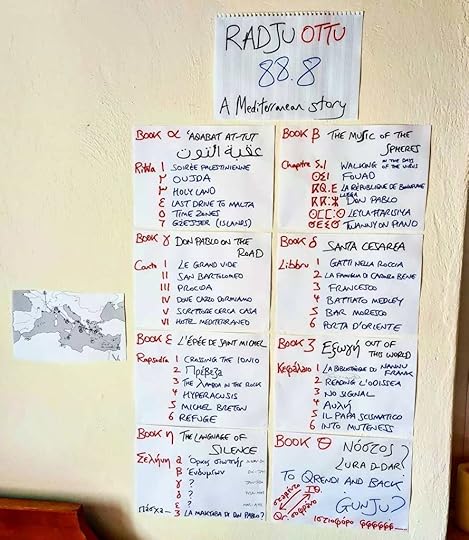 RADJU OTTU
88.8
A Mediterranean story
BOOK α 'AQABAT AT-TUT
عقبة التوت
Rihla ١ SOIRÉE PALESTINIENNE
٢ OUJDA
٣ HOLY LAND
٤ LAST DRIVE TO MALTA
٥ TIME ZONES
٦ GZEJJER (ISLANDS)
BOOK β THE MUSIC OF THE
SPHERES
Chapitre S.1 WALKING IN THE DAYS OF THE VIRUS
FOUAD
LA RÉPUBLIQUE DE
DON PABLO
LEYLA HARSIYA
TWANNY ON PIANO
BOOK γ DON PABLO ON THE
ROAD
Canto I LE GRAND VIDE
II SAN BARTOLOMEO
III PROCIDA
IV DOVE CAZZO DORMIAMO
V SCRITTORE CERCA CASA
VI HOTEL MEDITERRANEO
BOOK δ SANTA CESAREA
Libbru 1 GATTI NELLA ROCCIA
2 LA FAMIGLIA DI CARMELO BENE
3 FRANCESCO
4 BATTIATO MEDLEY
5 BAR MORESCO
6 PORTA D'ORIENTE
BOOK ε L'ÉPÉE DE SAINT MICHEL
Rapsodia 1 CROSSING THE IONIO
2 Πρέβεζα
3 THE LAMBDA IN THE ROCK
4 HYPERACUSIS
5 MICHEL BRETON
6 REFUGE
BOOK ζ Εξωγή OUT OF
THIS WORLD
Κεφάλαιο 1 LA BIBLIOTHÈQUE DU NANNU
FRANK
2 READING L'ODISSEA
3 NO SIGNAL
4 Αυλή
5 IL PAPA SCISMATICO
6 INTO MUTENESS
BOOK η THE LANGUAGE OF
SILENCE
Σελήνη α Όρκος σιωπής
β Ενδυμίων
γ ?
δ ?
ε ?
πάσχα ... ζ LA MAKTABA DI DON PABLO?
BOOK θ NÓΣΤΟΣ?
LURA D-DAR?
TO QRENDI AND BACK
GUNJU?
ιστιοφόρο φφφφφφ...